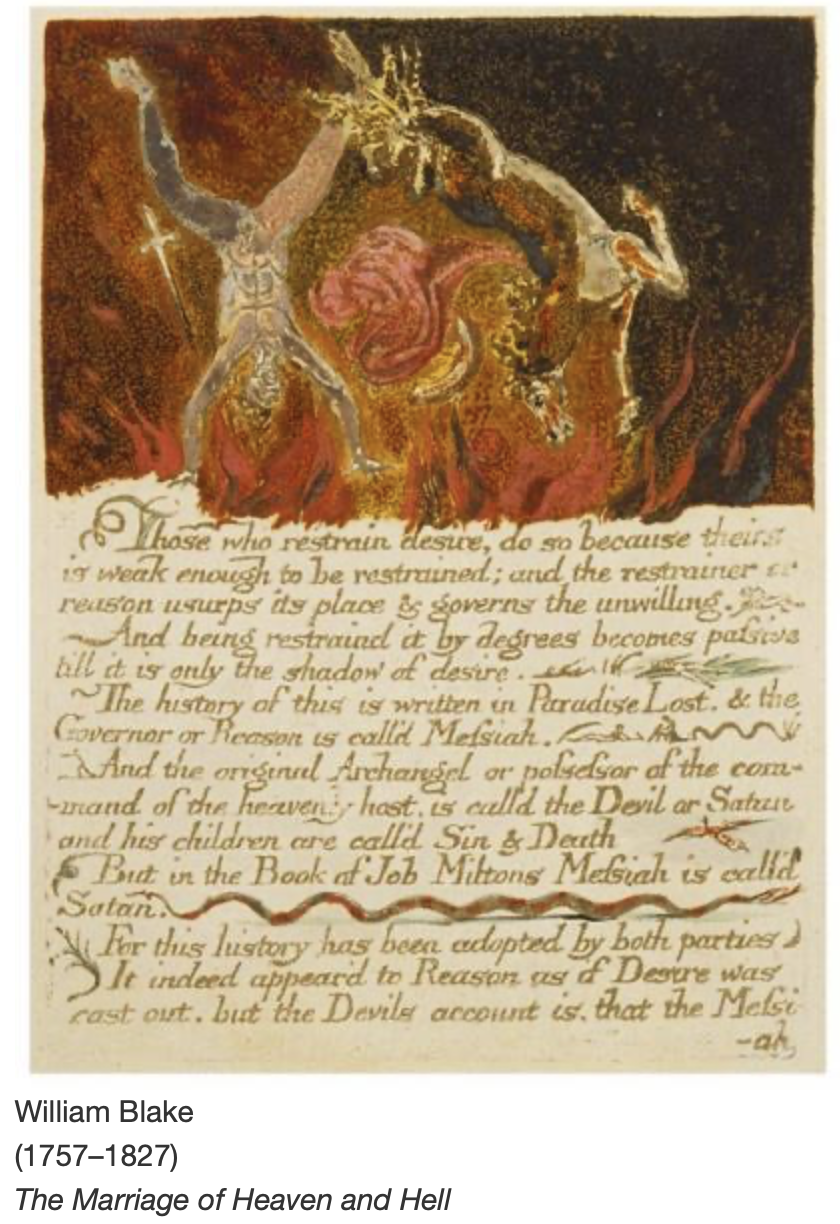 Those who restrain desire, do so because theirs
is weak enough to be restrained; and the restrainer or
reason usurps its place & governs the unwilling.
And being restraind it by degrees becomes passive
till it is only the shadow of desire.
The history of this is written in Paradise Lost. & the
Governor or Reason is call'd Messiah.
And the original Archangel or possessor of the com-
-mand of the heavenly host, is calld the Devil or Satan
and his children are call'd Sin & Death
But in the Book of Job Miltons Messiah is call'd
Satan.
For this history has been adopted by both parties
It indeed appear'd to Reason as if Desire was
cast out. but the Devils account is, that the Messi
-ah
William Blake
(1757–1827)
The Marriage of Heaven and Hell